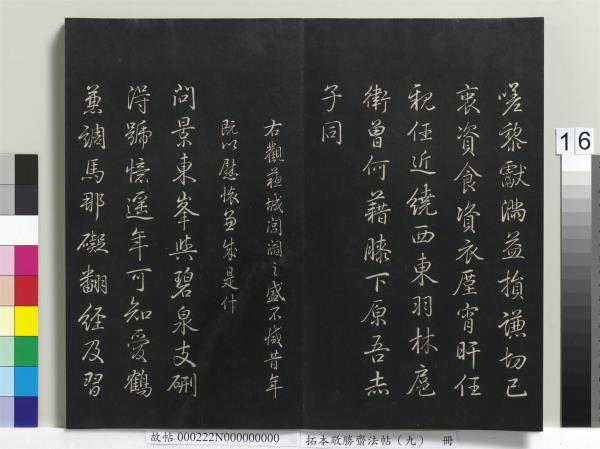 嗟黎獻滿益損謙切己
衷資食資衣廑宵旰任
親任近繞西東羽林扈
衛曾何藉膝下原吾赤
子同
右觀蘇城閭閻之盛不減昔年
既以慰懷並成是什
問景東峯與碧泉支硎
得號憶遙年可知愛鶴
兼調馬那礙翻經及習
16
故帖 000222N000000000
拓本敬勝齋法帖(九) 冊